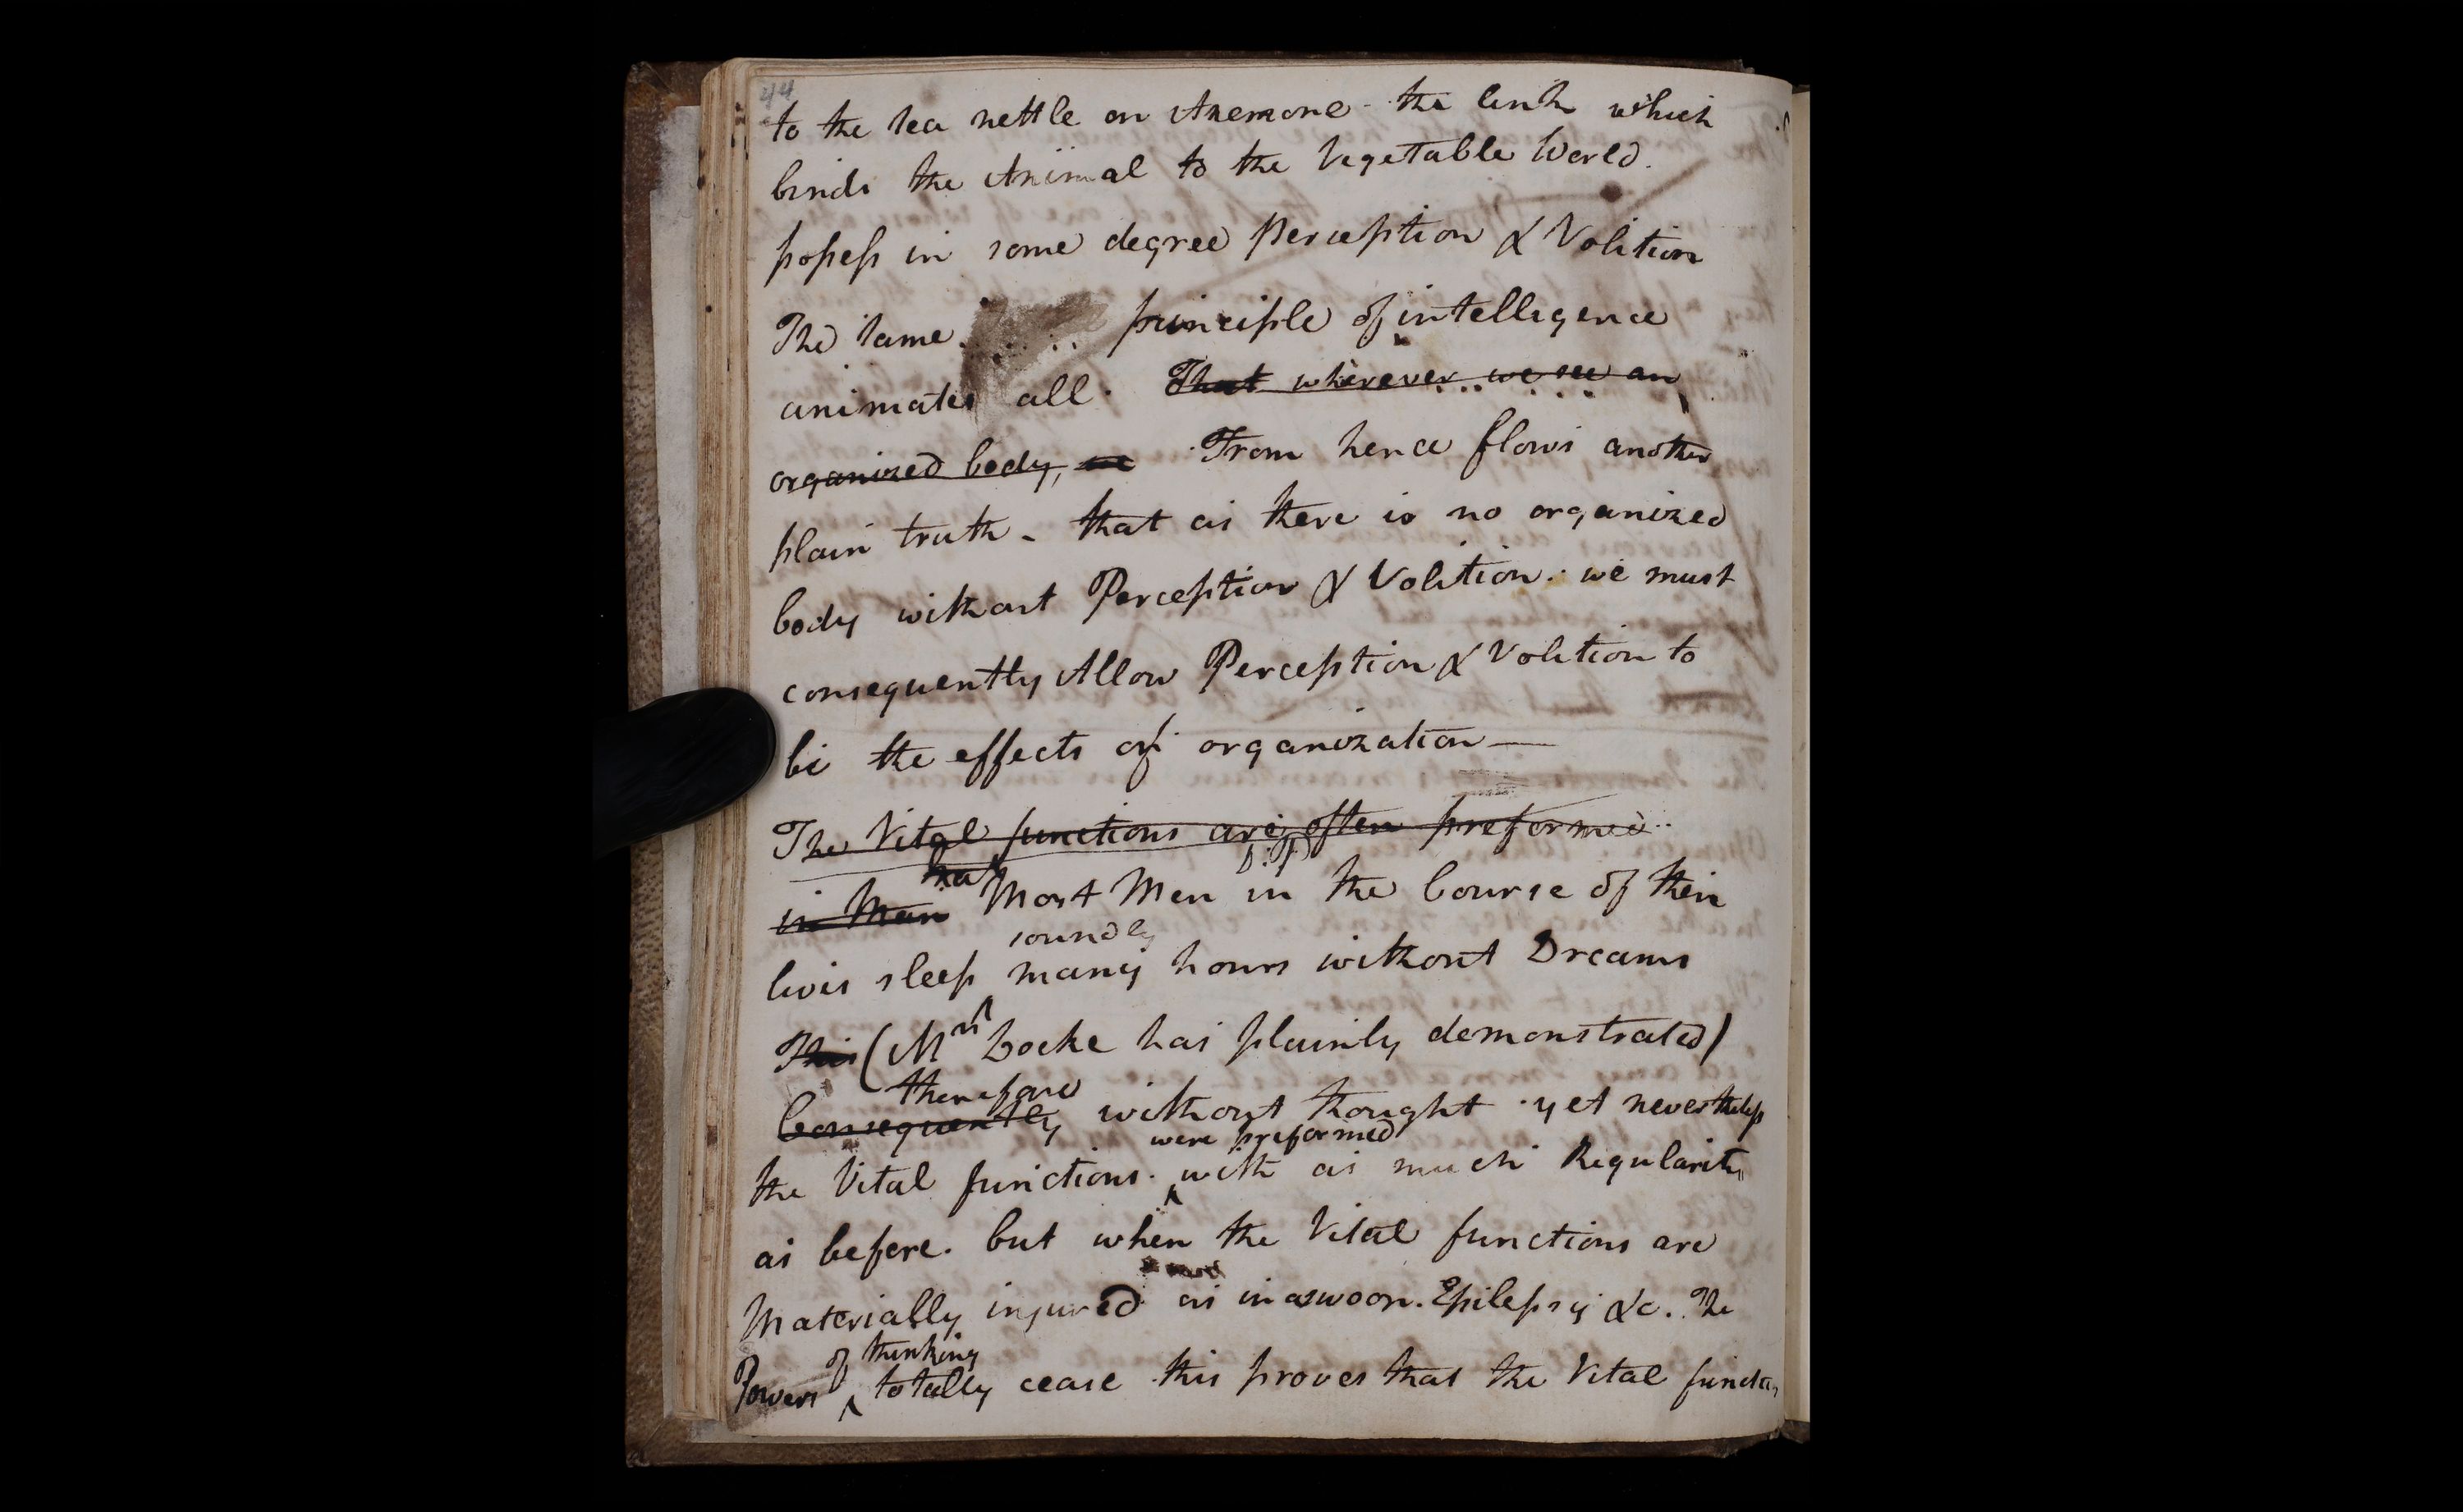 44
to the sea nettle or Anemone - the link which
binds the Animal to the Vegetable World.
possess in some degree Perception & Volition
The same principle of intelligence
animates all. That wherever we see an
organized body, we From hence flows another
plain truth - that as there is no organized
body without Perception & Volition. we must
consequently Allow Perception & Volition to
be the effects of organization —
The Vital functions are often preformed
in Man Most Men in the Course of their
soundly
lives sleep many hours without Dreams
This (Mr Locke has plainly demonstrated)
therefore
Consequently without thought yet nevertheless
were preformed
the Vital functions. with as much Regularity
as before. but when the Vital functions are
Materially injured as in a swoon. Epilepsy &c. The
of thinking
Powers totally cease this proves that the Vital